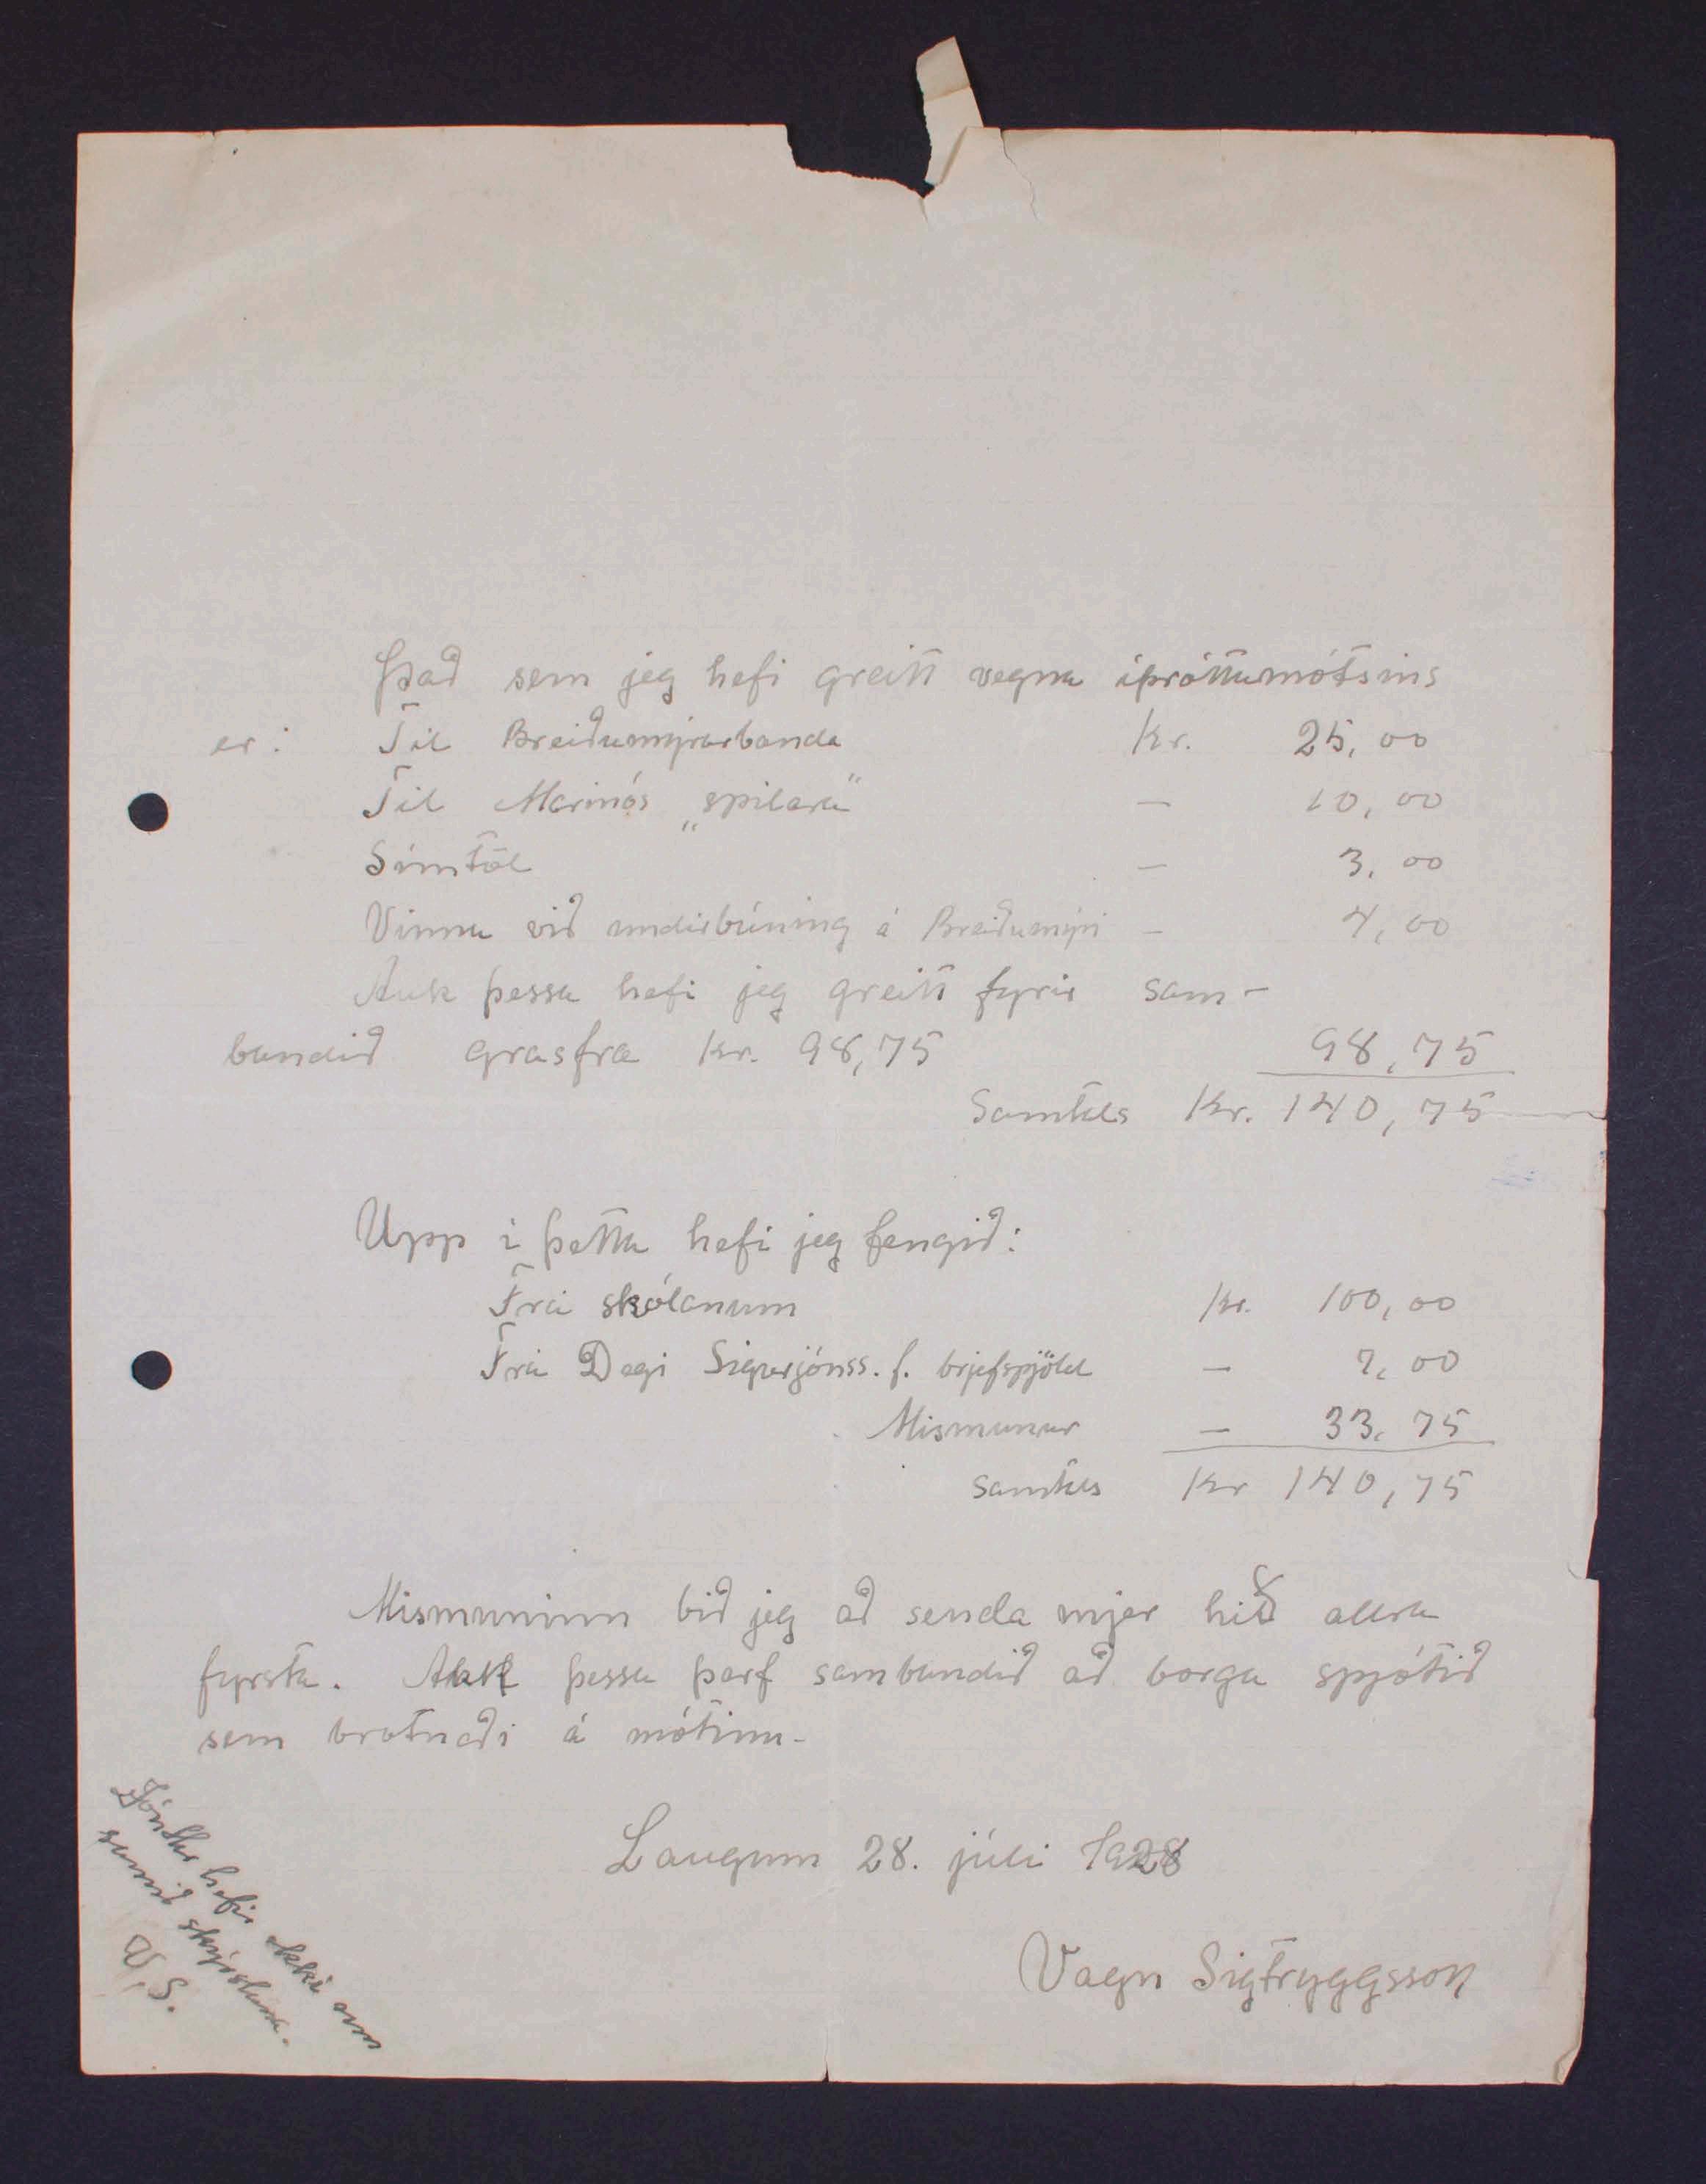 Það sem jeg hefi greitt vegna íþróttamótsins
er: Til Breiðumýrarbanda Kr. 25,00
Til Marinós „spilara“ — 10,00
Símtöl — 3,00
Vinna við undirbúning á Breiðumýri — 4,00
Auk þessa hefi jeg greitt fyrir sam-
bandið grasfræ kr. 98,75 98,75
Samtals Kr. 140,75
Upp í þetta hefi jeg fengið:
Frá skólanum Kr. 100,00
Frá Degi Sigurjónss. f. brjefspjöld — 7,00
Mismunur — 33,75
Samtals Kr 140,75
Mismuninn bið jeg að senda mjer hið allra
fyrsta. Auk þessa þarf sambandið að borga spjótið
sem brotnaði á mótinu.
Laugum 28. júlí 1928
Vagn Sigtryggsson
hefir ekki um
samið skýrsluna.
V.S.